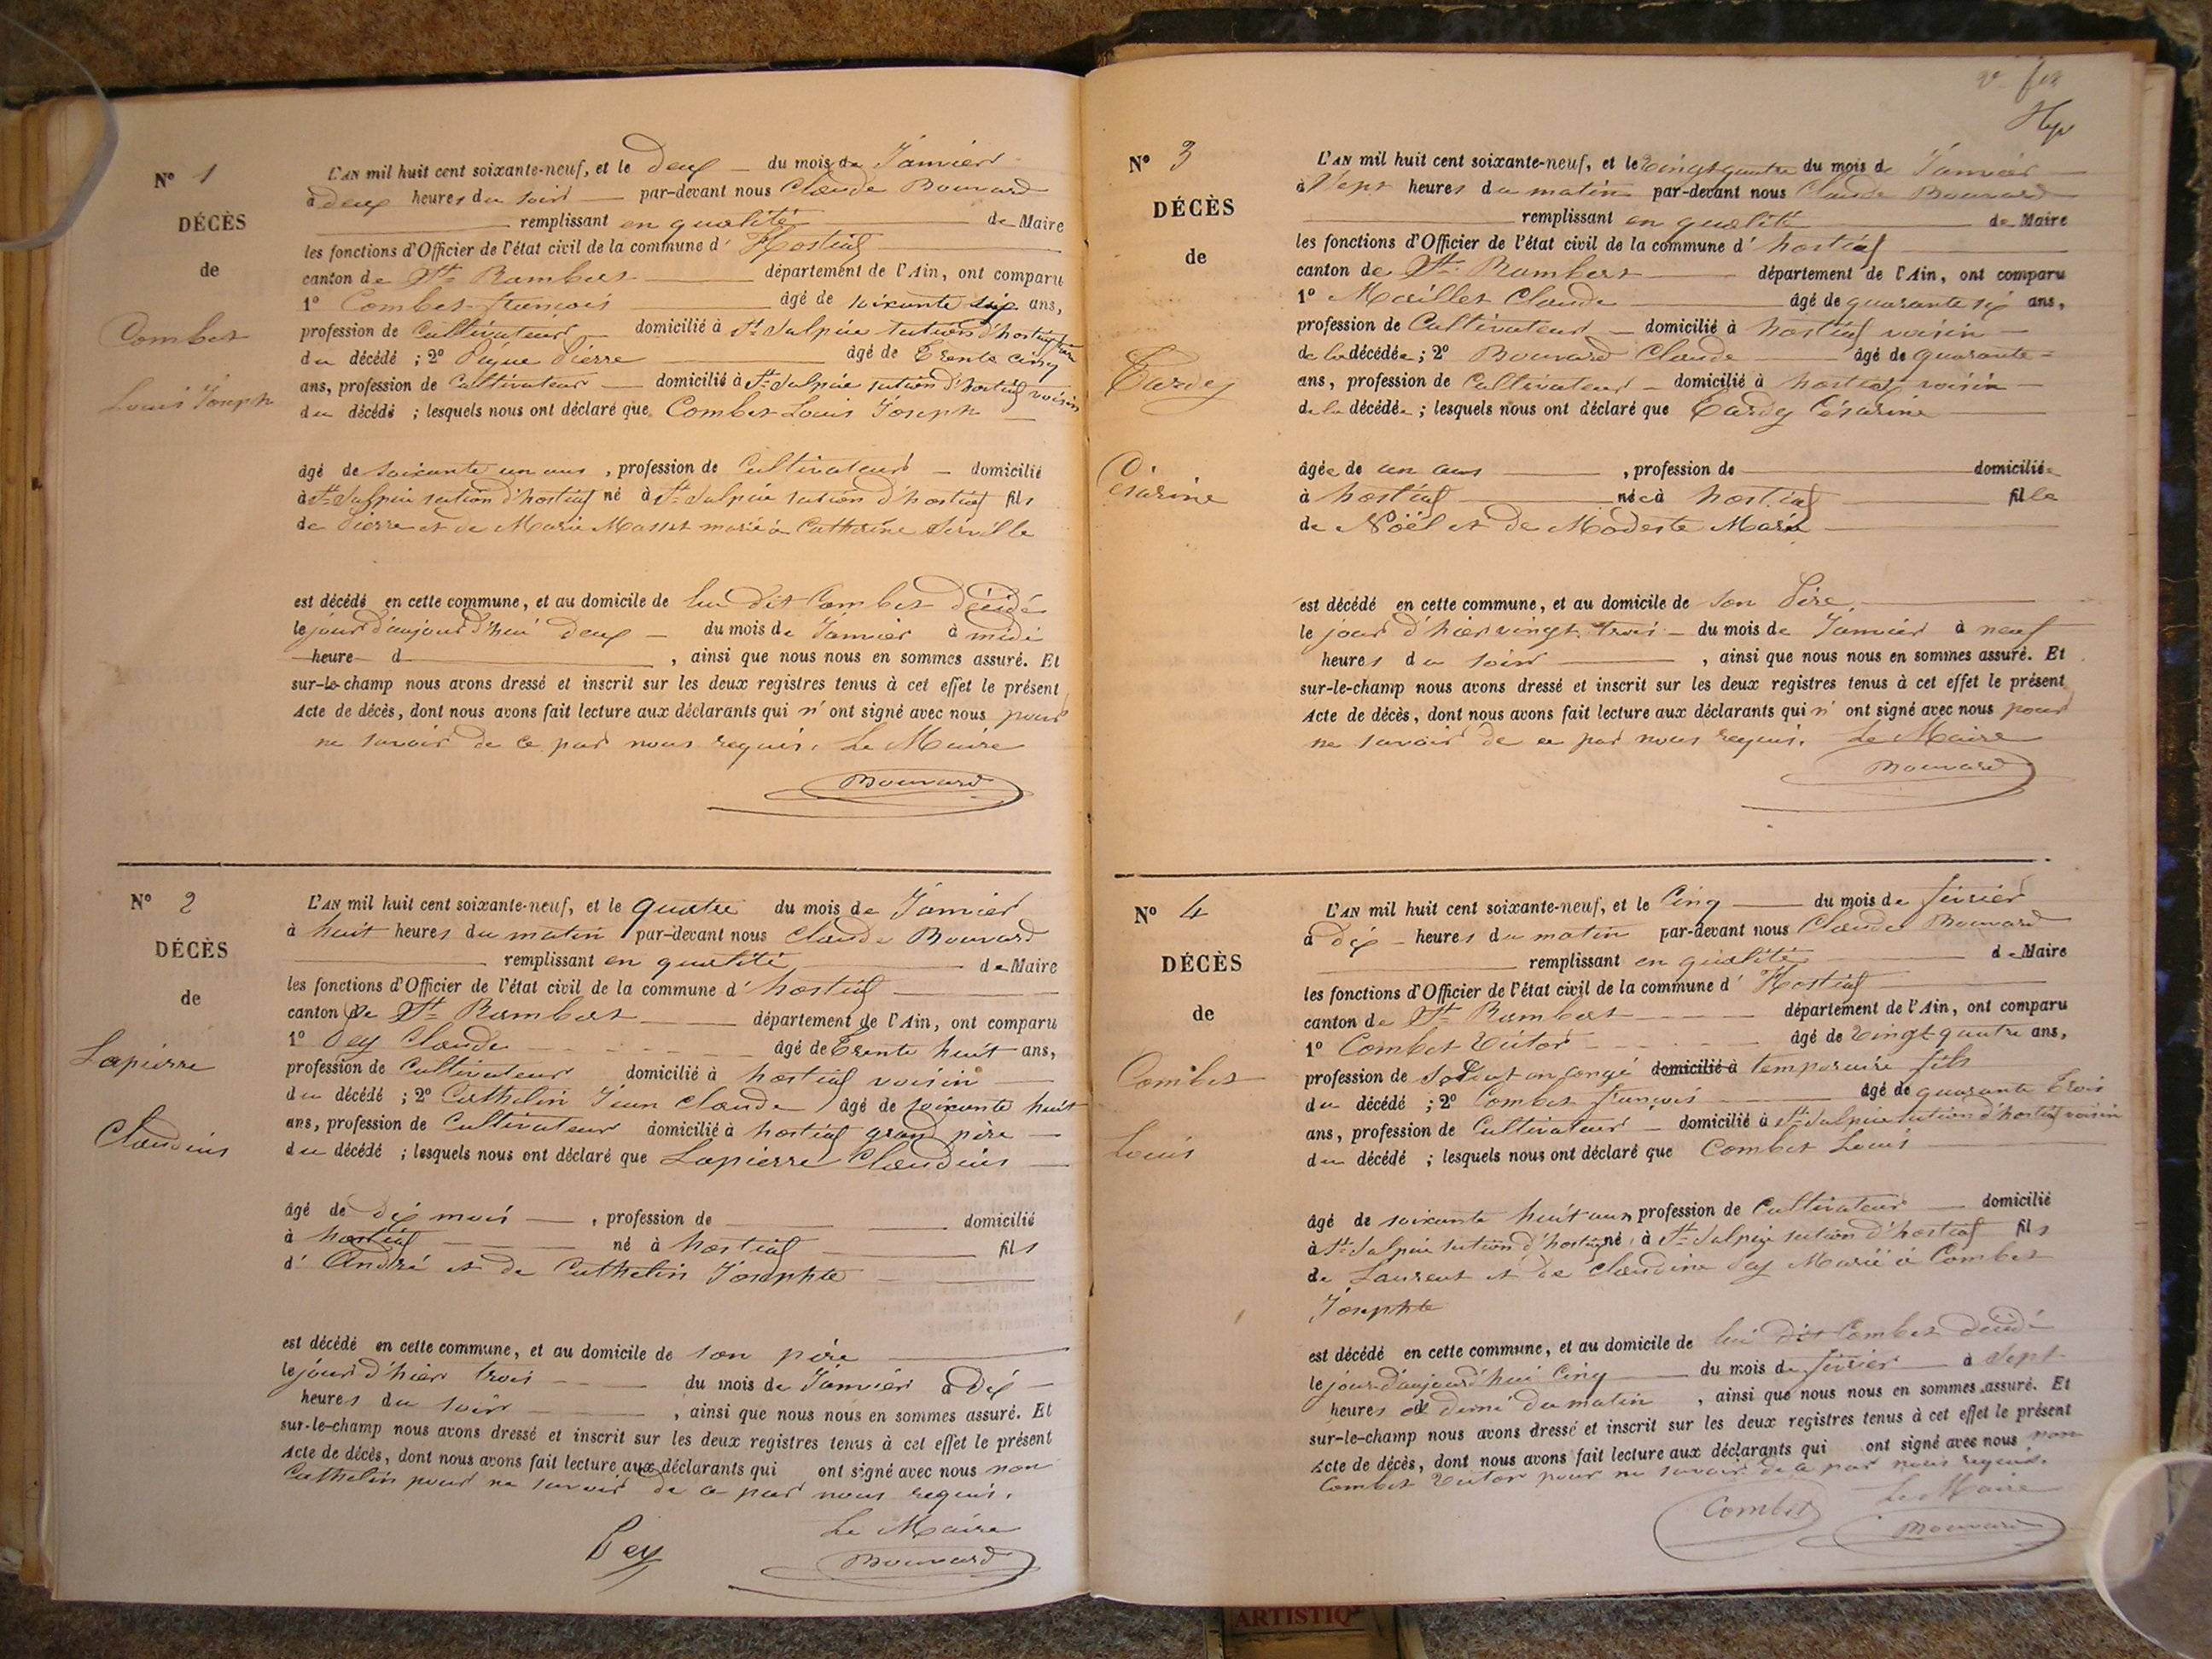 Nº 1
DÉCÈS
de
Combet
Louis Joseph
L'AN mil huit cent soixante-neuf, et le deux du mois de Janvier
à deux heures du soir par-devant nous Claude Bouvard
remplissant en qualité de Maire
les fonctions d'Officier de l'état civil de la commune d' Hostiaz
canton de St Rambert département de l'Ain, ont comparu
1º Combet françois âgé de soixante six ans,
profession de Cultivateur domicilié à St Sulpice section d'hostiaz
du décédé ; 2º Pierre âgé de trente cinq
ans, profession de Cultivateur domicilié à St Sulpice section d'hostiaz voisin
du décédé ; lesquels nous ont déclaré que Combet Louis Joseph
âgé de soixante un ans , profession de Cultivateur domicilié
à St Sulpice section d'hostiaz né à St Sulpice section d'hostiaz fils
de Pierre et de Marie Masset marié à Catherine
est décédé en cette commune, et au domicile de lui dit Combet décédé
le jour d'aujourd'hui deux du mois de Janvier à midi
heure d , ainsi que nous nous en sommes assuré. Et
sur-le-champ nous avons dressé et inscrit sur les deux registres tenus à cet effet le présent
Acte de décès, dont nous avons fait lecture aux déclarants qui n' ont signé avec nous pour
ne savoir de ce par nous requis. Le Maire
Bouvard
Nº 2
DÉCÈS
de
Lapierre
Claudius
L'AN mil huit cent soixante-neuf, et le quatre du mois de Janvier
à huit heures du matin par-devant nous Claude Bouvard
remplissant en qualité de Maire
les fonctions d'Officier de l'état civil de la commune d' hostiaz
canton de St Rambert département de l'Ain, ont comparu
1º Pey Claude âgé de trente huit ans,
profession de Cultivateur domicilié à hostiaz voisin
du décédé ; 2º Cathelin Jean Claude âgé de soixante huit
ans, profession de Cultivateur domicilié à hostiaz grand père
du décédé ; lesquels nous ont déclaré que Lapierre Claudius
âgé de dix mois , profession de domicilié
à hostiaz né à hostiaz fils
d' André et de Cathelin Josephte
est décédé en cette commune, et au domicile de son père
le jour d'hier trois du mois de Janvier à dix
heures du soir , ainsi que nous nous en sommes assuré. Et
sur-le-champ nous avons dressé et inscrit sur les deux registres tenus à cet effet le présent
Acte de décès, dont nous avons fait lecture aux déclarants qui ont signé avec nous non
Cathelin pour ne savoir de ce par nous requis.
Le Maire
Pey Bouvard
Nº 3
DÉCÈS
de
Tardy
Césarine
L'AN mil huit cent soixante-neuf, et le vingt quatre du mois de Janvier
à sept heures du matin par-devant nous Claude Bouvard
remplissant en qualité de Maire
les fonctions d'Officier de l'état civil de la commune d' hostiaz
canton de St Rambert département de l'Ain, ont comparu
1º Maillet Claude âgé de quarante six ans,
profession de Cultivateur domicilié à hostiaz voisin
de la décédée ; 2º Bouvard Claude âgé de quarante
ans, profession de Cultivateur domicilié à hostiaz voisin
de la décédée ; lesquels nous ont déclaré que Tardy Césarine
âgée de un ans , profession de domiciliée
à hostiaz née à hostiaz fille
de Noël et de Modeste Marie
est décédé en cette commune, et au domicile de son Père
le jour d'hier vingt trois du mois de Janvier à neuf
heures du soir , ainsi que nous nous en sommes assuré. Et
sur-le-champ nous avons dressé et inscrit sur les deux registres tenus à cet effet le présent
Acte de décès, dont nous avons fait lecture aux déclarants qui n' ont signé avec nous pour
ne savoir de ce par nous requis. Le Maire
Bouvard
Nº 4
DÉCÈS
de
Combet
Louis
L'AN mil huit cent soixante-neuf, et le Cinq du mois de février
à dix heures du matin par-devant nous Claude Bouvard
remplissant en qualité de Maire
les fonctions d'Officier de l'état civil de la commune d' Hostiaz
canton de St Rambert département de l'Ain, ont comparu
1º Combet Victor âgé de vingt quatre ans,
profession de Soldat en congé domicilié à temporaire fils
du décédé ; 2º Combet françois âgé de quarante trois
ans, profession de Cultivateur domicilié à St Sulpice section d'hostiaz voisin
du décédé ; lesquels nous ont déclaré que Combet Louis
âgé de soixante huit ans, profession de Cultivateur domicilié
à St Sulpice section d'hostiaz né à St Sulpice section d'hostiaz fils
de Laurent et de Claudine Pey Marié à Combet
Josephte
est décédé en cette commune, et au domicile de lui dit Combet décédé
le jour d'aujourd'hui Cinq du mois de février à sept
heures et demi du matin , ainsi que nous nous en sommes assuré. Et
sur-le-champ nous avons dressé et inscrit sur les deux registres tenus à cet effet le présent
Acte de décès, dont nous avons fait lecture aux déclarants qui ont signé avec nous non
Combet Victor pour ne savoir de ce par nous requis.
Le Maire
Combet Bouvard
ARTISTIQ